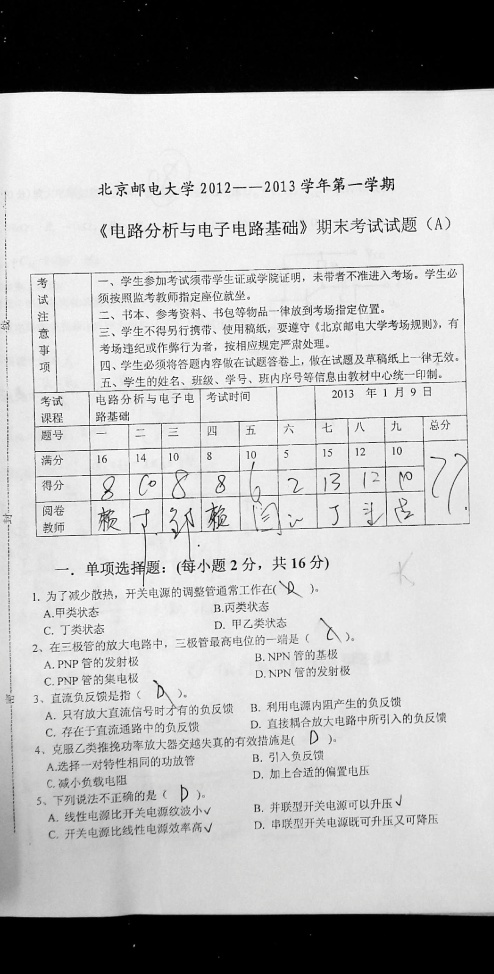 北京邮电大学 2012——2013 学年第一学期
《电路分析与电子电路基础》期末考试试题（A）
考试注意事项
一、学生参加考试须带学生证或学院证明，未带者不准进入考场。学生必
须按照监考教师指定座位就坐。
二、书本、参考资料、书包等物品一律放到考场指定位置。
三、学生不得另行携带、使用稿纸，要遵守《北京邮电大学考场规则》，有
考场违纪或作弊行为者，按相应规定严肃处理。
四、学生必须将答题内容做在试题答卷上，做在试题及草稿纸上一律无效。
五、学生的姓名、班级、学号、班内序号等信息由教材中心统一印制。
考试课程 电路分析与电子电路基础 考试时间 2013 年 1 月 9 日
题号 一 二 三 四 五 六 七 八 九 总分
满分 16 14 10 8 10 5 15 12 10
得分 8 8 8 6 2 13 12 10 77
阅卷教师
一．单项选择题：(每小题 2 分，共 16 分)
1. 为了减少散热，开关电源的调整管通常工作在( D )。
A.甲类状态 B.丙类状态
C. 丁类状态 D. 甲乙类状态
2、在三极管的放大电路中，三极管最高电位的一端是（ ）。
A. PNP 管的发射极 B. NPN 管的基极
C. PNP 管的集电极 D. NPN 管的发射极
3、直流负反馈是指（ D ）。
A. 只有放大直流信号时才有的负反馈 B. 利用电源内阻产生的负反馈
C. 存在于直流通路中的负反馈 D. 直接耦合放大电路中所引入的负反馈
4、克服乙类推挽功率放大器交越失真的有效措施是( D )。
A.选择一对特性相同的功放管 B. 引入负反馈
C. 减小负载电阻 D. 加上合适的偏置电压
5、下列说法不正确的是（ D ）。
A. 线性电源比开关电源纹波小√ B. 并联型开关电源可以升压√
C. 开关电源比线性电源效率高√ D. 串联型开关电源既可升压又可降压